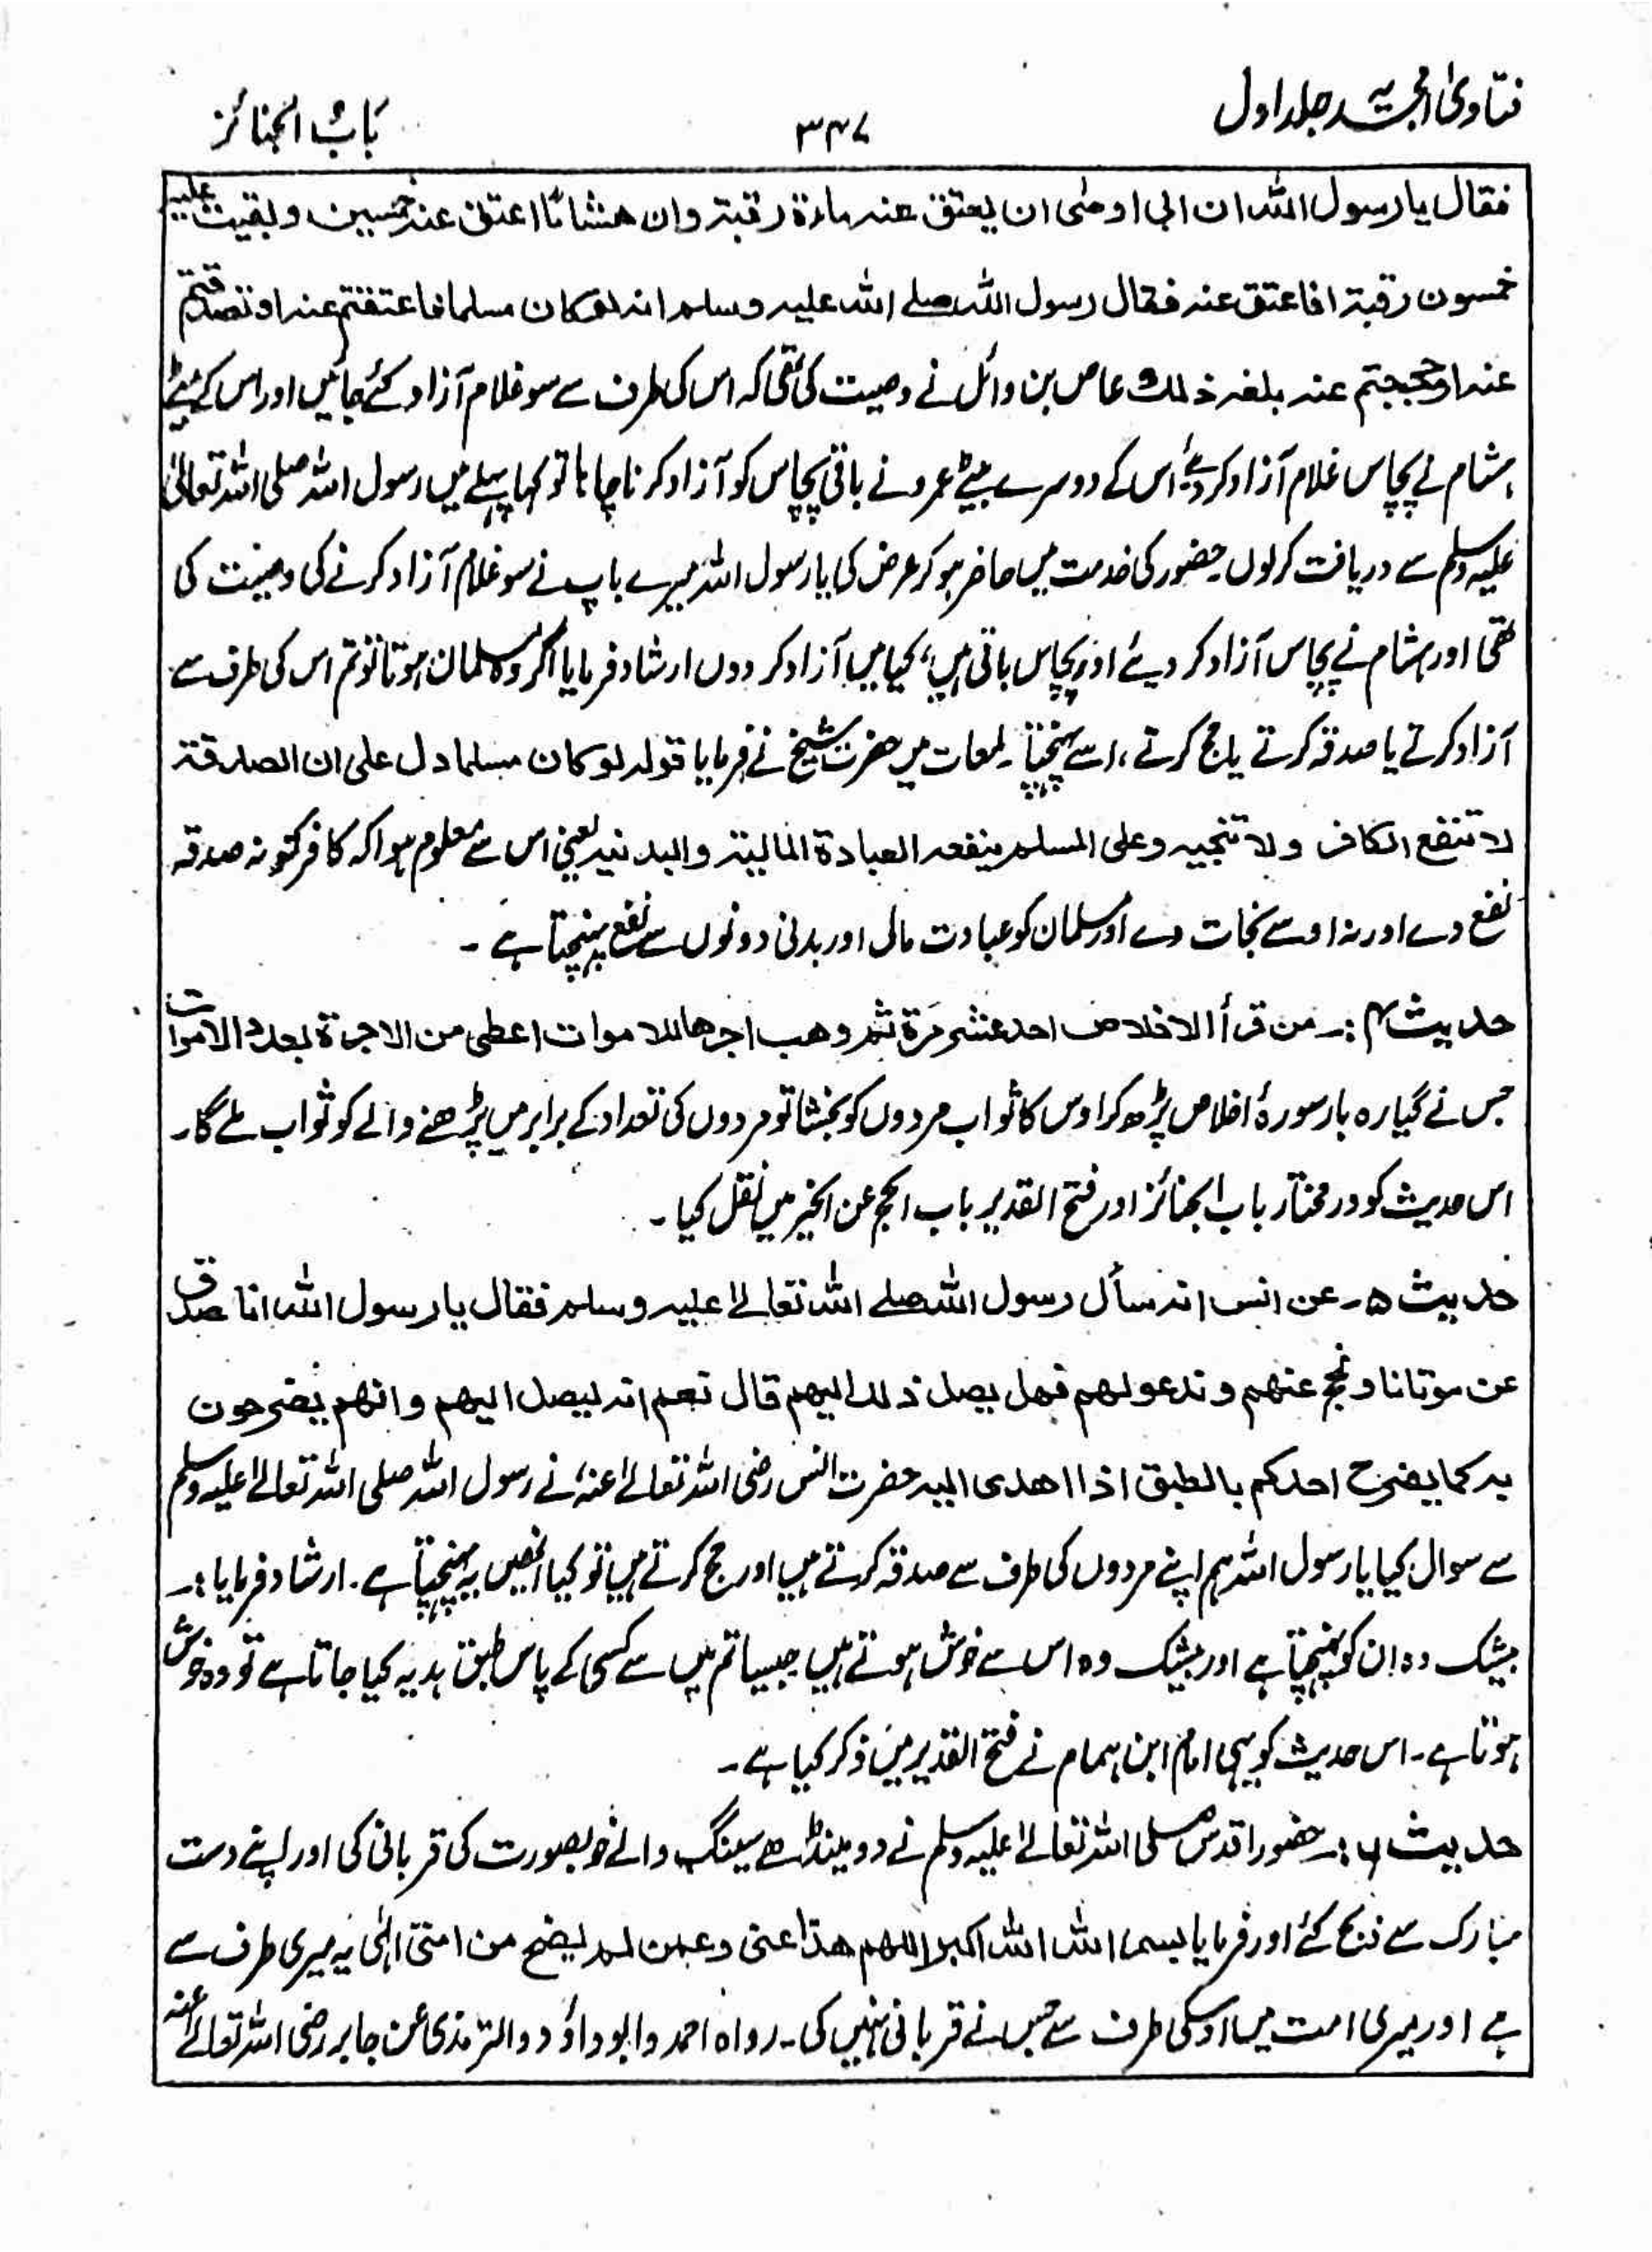 فتاویٰ امجدیہ جلد اول
۳۴۷
باب الجنائز
فقال یا رسول اللہ ان ابی اوصی ان یعتق عنہ مائۃ رقبۃ وان ھشاما اعتق عنہ خمسین وبقیت علیہ
خمسون رقبۃ افاعتق عنہ فقال رسول اللہ صلے اللہ علیہ وسلم انہ لوکان مسلما فاعتقتم عنہ اوتصدقتم
عنہ اوحججتم عنہ بلغہ ذلک عاص بن وائل نے وصیت کی تھی کہ اس کی طرف سے سو غلام آزاد کئے جائیں اور اس کے بیٹے
ہشام نے پچاس غلام آزاد کر دیئے اس کے دوسرے بیٹے عمرو نے باقی پچاس کو آزاد کرنا چاہا تو کہا پہلے میں رسول اللہ صلی اللہ تعالیٰ
علیہ وسلم سے دریافت کرلوں حضور کی خدمت میں حاضر ہو کر عرض کی یا رسول اللہ میرے باپ نے سو غلام آزاد کرنے کی وصیت کی
تھی اور ہشام نے پچاس آزاد کر دیئے اور پچاس باقی ہیں، کیا میں آزاد کر دوں ارشاد فرمایا اگر وہ مسلمان ہوتا تو تم اس کی طرف سے
آزاد کرتے یا صدقہ کرتے یا حج کرتے، اسے پہنچتا۔ لمعات میں حضرت شیخ نے فرمایا قولہ لوکان مسلما دل علی ان الصدقۃ
لا تنفع الکافر ولا تنجیہ وعلی المسلم ینفعہ العبادۃ المالیۃ والبدنیہ یعنی اس سے معلوم ہوا کہ کافر کو نہ صدقہ
نفع دے اور نہ اوسے نجات دے اور مسلمان کو عبادت مالی اور بدنی دونوں سے نفع پہنچتا ہے ۔
حدیث ۴ :۔ من قرأ الاخلاص احد عشر مَرۃ ثم وھب اجرھا للاموات اعطی من الاجر ۃ بعدد الاموات
جس نے گیارہ بار سورۂ اخلاص پڑھ کر اوس کا ثواب مردوں کو بخشا تو مردوں کی تعداد کے برابر میں پڑھنے والے کو ثواب ملے گا۔
اس حدیث کو در مختار باب الجنائز اور فتح القدیر باب الحج عن الخیر میں نقل کیا ۔
حدیث ۵ ۔ عن انس انہ سأل رسول اللہ صلے اللہ تعالےٰ علیہ وسلم فقال یا رسول اللہ انا نصدق
عن موتانا ونحج عنھم وندعولھم فھل یصل ذلک الیھم قال نعم انہ لیصل الیھم وانھم یفرحون
بہ کما یفرح احدکم بالطبق اذا اھدی الیہ حضرت انس رضی اللہ تعالےٰ عنہ، نے رسول اللہ صلی اللہ تعالےٰ علیہ وسلم
سے سوال کیا یا رسول اللہ ہم اپنے مردوں کی طرف سے صدقہ کرتے ہیں اور حج کرتے ہیں تو کیا انھیں یہ پہنچتا ہے ۔ ارشاد فرمایا :۔
بیشک وہ ان کو پہنچتا ہے اور بیشک وہ اس سے خوش ہوتے ہیں جیسا تم میں سے کسی کے پاس طبق ہدیہ کیا جاتا ہے تو وہ خوش
ہوتا ہے ۔ اس حدیث کو یہی امام ابن ہمام نے فتح القدیر میں ذکر کیا ہے ۔
حدیث ۶ :۔ حضور اقدس صلی اللہ تعالےٰ علیہ وسلم نے دو مینڈھے سینگ والے خوبصورت کی قربانی کی اور اپنے دست
مبارک سے ذبح کئے اور فرمایا بسم اللہ اللہ اکبر اللھم ھذا عنی وعمن لم یضح من امتی الٰہی یہ میری طرف سے
ہے اور میری امت میں اوسکی طرف سے جس نے قربانی نہیں کی ۔ رواہ احمد وابو داؤد والترمذی عن جابر رضی اللہ تعالےٰ عنہ